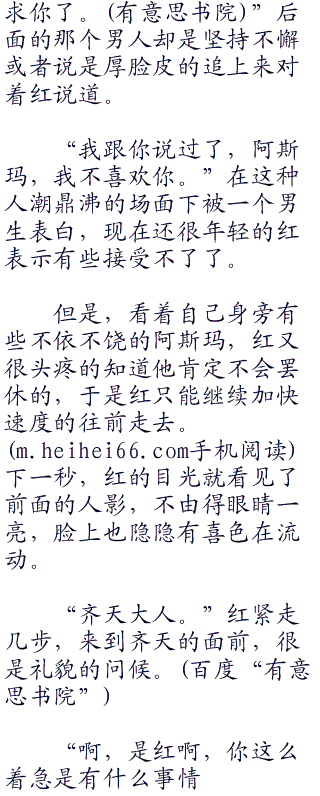 求你了。(有意思书院)”后
面的那个男人却是坚持不懈
或者说是厚脸皮的追上来对
着红说道。
“我跟你说过了，阿斯
玛，我不喜欢你。”在这种
人潮鼎沸的场面下被一个男
生表白，现在还很年轻的红
表示有些接受不了了。
但是，看着自己身旁有
些不依不饶的阿斯玛，红又
很头疼的知道他肯定不会罢
休的，于是红只能继续加快
速度的往前走去。
(m.heihei66.com手机阅读)
下一秒，红的目光就看见了
前面的人影，不由得眼睛一
亮，脸上也隐隐有喜色在流
动。
“齐天大人。”红紧走
几步，来到齐天的面前，很
是礼貌的问候。(百度“有意
思书院”)
“啊，是红啊，你这么
着急是有什么事情